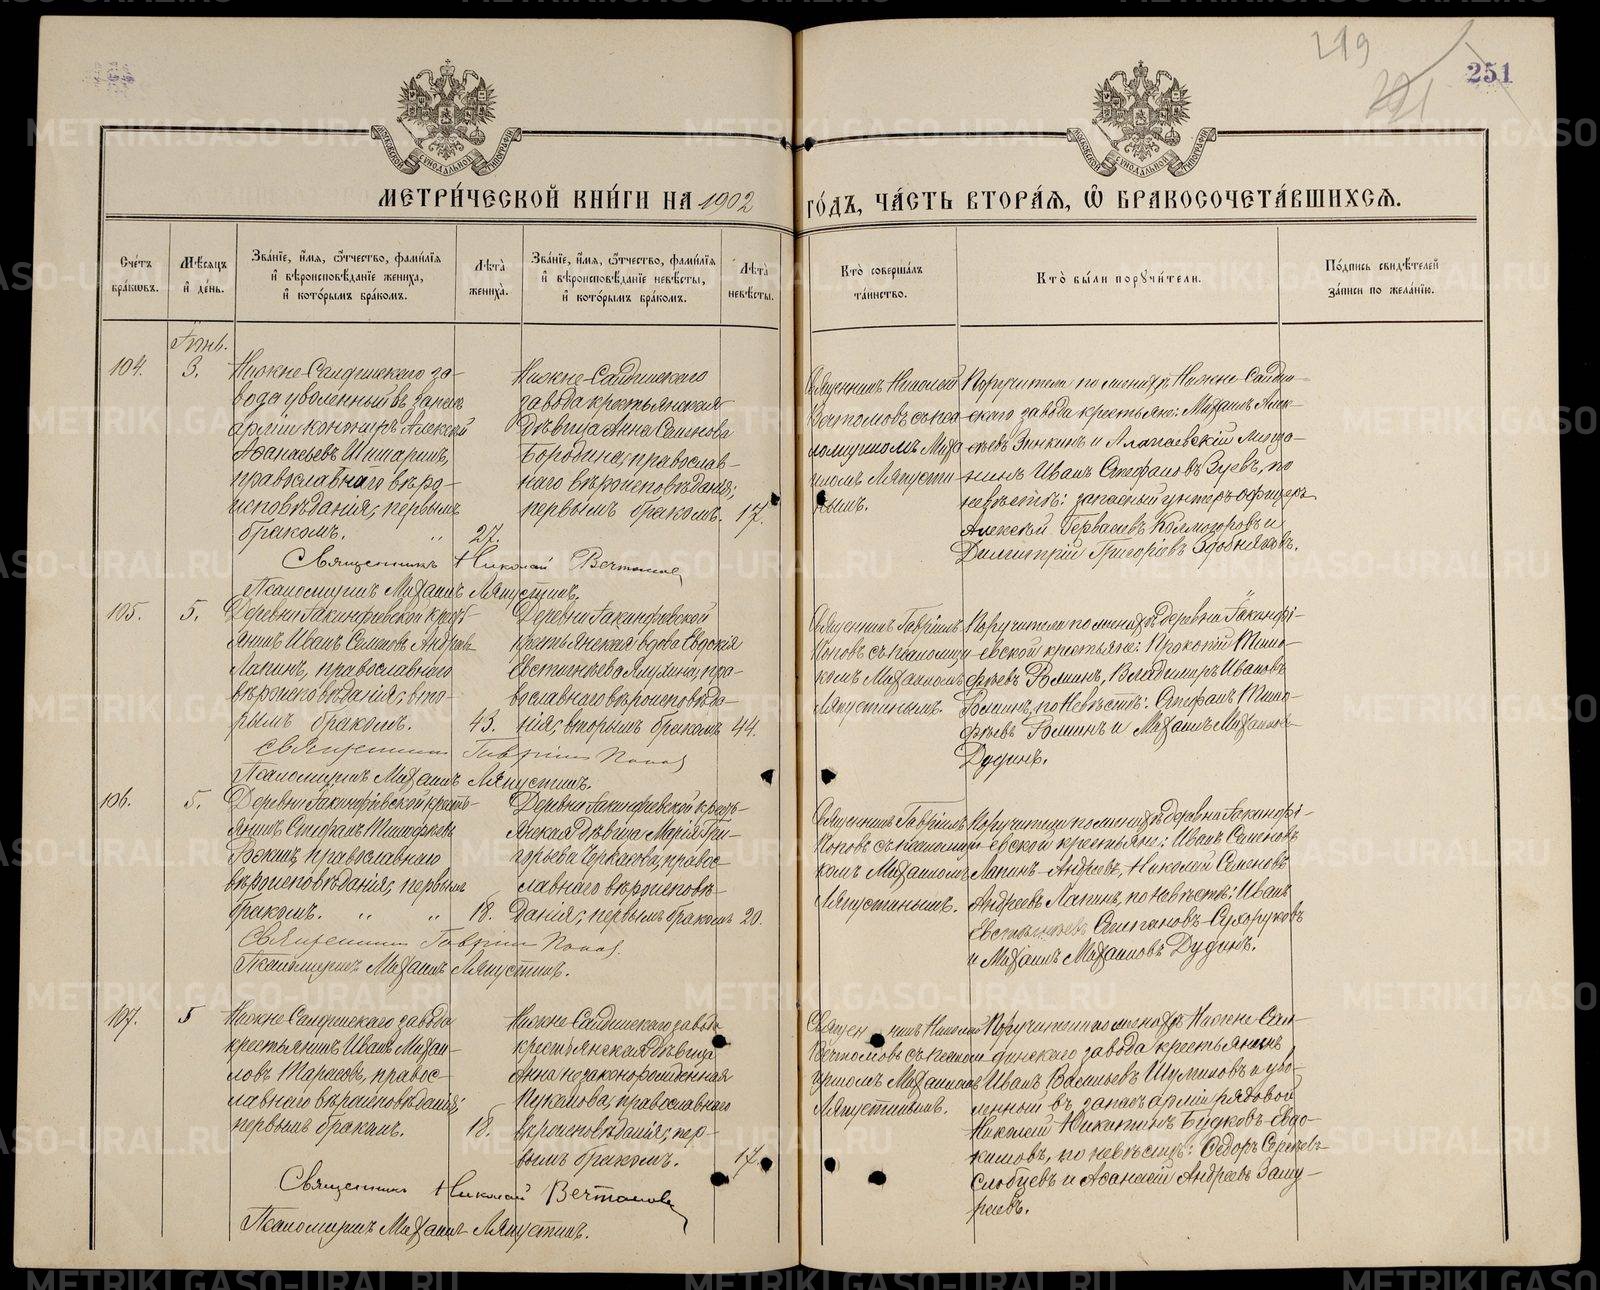 219
251
МЕТРИ́ЧЕСКОЙ КНИ́ГИ НА 1902 ГО́ДЪ, ЧА́СТЬ ВТОРА́Я, Ѽ БРАКОСОЧЕТА́ВШИХСЯ.
Сче́тъ бра́кѡвъ.
Мѣ́сяцъ и҆ де́нь.
Зва́нїе, и҆́мя, ѻ҆́тчество, фами́лїя и҆ вѣроисповѣ́данїе жениха̀, и҆ кото́рымъ бра́комъ.
Лѣ́та жениха̀.
Зва́нїе, и҆́мя, ѻ҆́тчество, фами́лїя и҆ вѣроисповѣ́данїе невѣ́сты, и҆ кото́рымъ бра́комъ.
Лѣ́та невѣ́сты.
Кто̀ соверша́лъ та́инство.
Кто̀ бы́ли порꙋчи́тели.
По́дпись свидѣ́телей за́писи по жела́нїю.
104.
3.
Нижне-Салдинскаго за-
вода уволенный въ запасъ
арміи Алексѣй
Аѳанасьевъ
православнаго вѣро-
исповѣданія; первымъ
бракомъ. 27.
Нижне-Салдинскаго
завода крестьянская
дѣвица Анна Семенова
Бородина, православ-
наго вѣроисповѣданія;
первымъ бракомъ. 17.
Священникъ Николай
Вечтомовъ съ пса-
ломщикомъ Миха-
иломъ Ляпусти-
нымъ.
Поручители по женихѣ Нижне-Салди-
нскаго завода крестьяне: Михаилъ Алек-
сѣевъ Зинкинъ и Алапаевскій мѣща-
нинъ Иванъ Стефановъ Зуевъ, по
невѣстѣ: запасный унтеръ-офицеръ
Алексѣй Колмогоровъ и
Димитрій Григорьевъ
Священникъ Николай Вечтомовъ
Псаломщикъ Михаилъ Ляпустинъ.
105.
5.
Деревни Іакинфіевской крест-
янинъ Иванъ Семеновъ Андреевъ
Лапинъ, православнаго
вѣроисповѣданія; вто-
рымъ бракомъ. 43.
Деревни Іакинфіевской
крестьянская вдова Евдокія
Евстигнѣева пра-
вославнаго вѣроисповѣда-
нія; вторымъ бракомъ 44.
Священникъ Гавріилъ
Поповъ съ псаломщи-
комъ Михаиломъ
Ляпустинымъ.
Поручители по женихѣ деревни Іакинфі-
евской крестьяне: Прокопій Тимо-
фѣевъ Владимиръ Ивановъ
по невѣстѣ: Стефанъ Тимо-
фѣевъ и Михаилъ Михаиловъ
Дудинъ.
Священникъ Гавріилъ Поповъ
Псаломщикъ Михаилъ Ляпустинъ.
106.
5.
Деревни Іакинфіевской крест-
янинъ Стефанъ Тимофѣевъ
православнаго
вѣроисповѣданія; первымъ
бракомъ. 18.
Деревни Іакинфіевской кресть-
янская дѣвица Марія Гри-
горьева Черкасова, правос-
лавнаго вѣроисповѣ-
данія; первымъ бракомъ 20.
Священникъ Гавріилъ
Поповъ съ псаломщи-
комъ Михаиломъ
Ляпустинымъ.
Поручители по женихѣ деревни Іакинфі-
евской крестьяне: Иванъ Семеновъ
Лапинъ-Андреевъ, Николай Семеновъ
Андреевъ Лапинъ, по невѣстѣ: Иванъ
Степановъ-Сухоруковъ
и Михаилъ Михаиловъ Дудинъ.
Священникъ Гавріилъ Поповъ.
Псаломщикъ Михаилъ Ляпустинъ.
107.
5
Нижне-Салдинскаго завода
крестьянинъ Иванъ Михаи-
ловъ Тарасовъ, правос-
лавнаго вѣроисповѣданія;
первымъ бракомъ. 18.
Нижне-Салдинскаго завода
крестьянская дѣвица
Анна незаконорожденная
православнаго
вѣроисповѣданія; пер-
вымъ бракомъ. 17.
Священникъ Николай
Вечтомовъ съ псалом-
щикомъ Михаиломъ
Ляпустинымъ.
Поручители по женихѣ Нижне-Сал-
динскаго завода крестьянинъ
Иванъ Васильевъ Шумиловъ и уво-
ленный въ запасъ арміи рядовой
Николай Никитинъ Евдо-
кимовъ, по невѣстѣ: Ѳедоръ Сергѣевъ
Слобцевъ и Аѳанасій Андреевъ Заму-
раевъ.
Священникъ Николай Вечтомовъ
Псаломщикъ Михаилъ Ляпустинъ.
METRIKI.GASO-URAL.RU